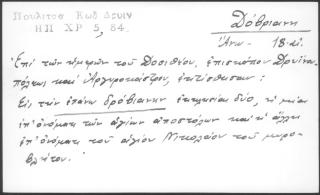 Πουλιτσα Κωδ Δρυιν
Η Π ΧΡ 5, 84.
Δόβριανη
Ἄνω - 18 αἰ.
Ἐπὶ τῶν ἡμερῶν τοῦ Δοσιθέου, ἐπισκόπου Δρυϊνου
πόλεως καὶ Ἀργυροκάστρου, ἐκτίσθησαν:
Εἰς τὴν ἐπάνω δρόβιανην ἐκκλησίαι δύο, ἡ μία
ἐπ' ὀνόματι τῶν ἁγίων ἀποστόλων καὶ ἡ ἄλλη
ἐπ' ὀνόματι τοῦ ἁγίου Νικολάου τοῦ μυρο-
βλήτου.